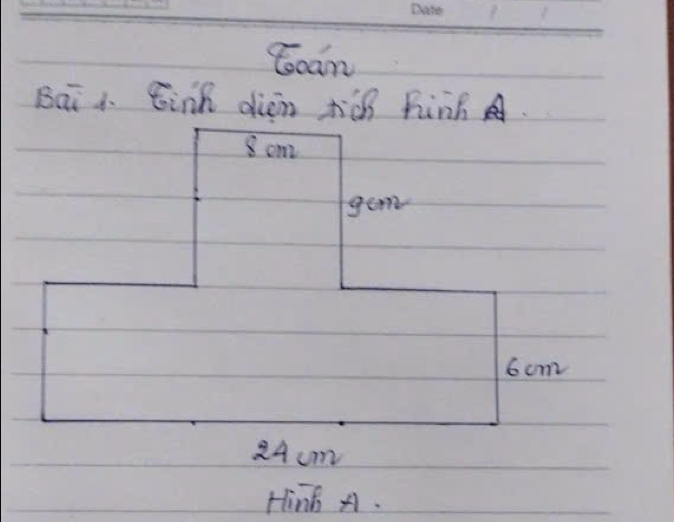 Date / /
Toán
Bài 1. Tính diện tích hình A.
8 cm
9cm
6 cm
24 cm
Hình A.